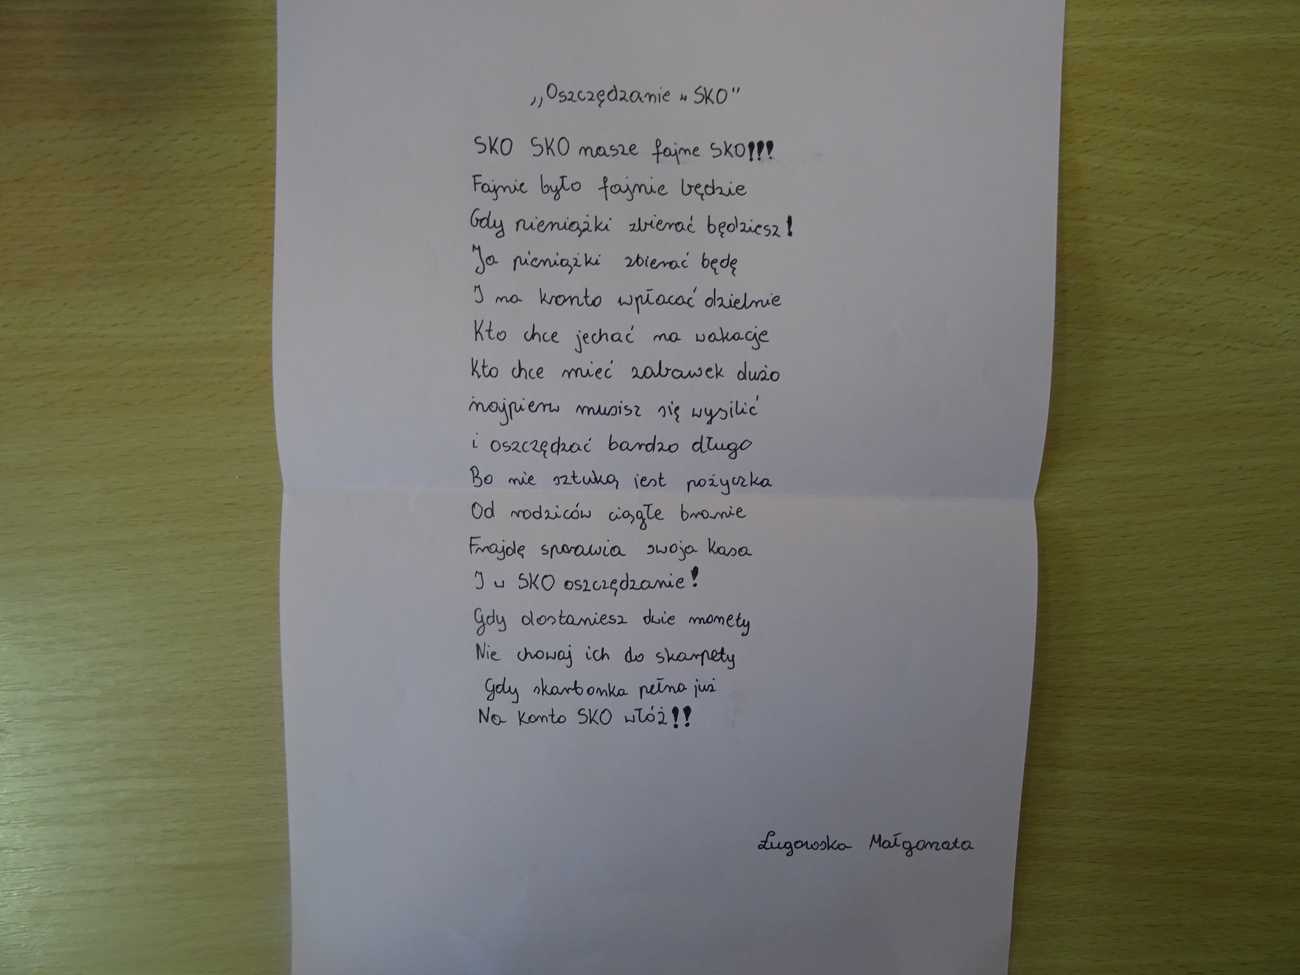 ,,Oszczędzanie w SKO"
SKO SKO nasze fajne SKO!!!
Fajnie było fajnie będzie
Gdy pieniążki zbierać będziesz!
Ja pieniążki zbierać będę
I na konto wpłacać dzielnie
Kto chce jechać na wakacje
Kto chce mieć zabawek dużo
najpierw musisz się wysilić
i oszczędzać bardzo długo
Bo nie sztuką jest pożyczka
Od rodziców ciągłe branie
Frajdę sprawia swoja kasa
I w SKO oszczędzanie!
Gdy dostaniesz dwie monety
Nie chowaj ich do skarpety
Gdy skarbonka pełna już
Na konto SKO włóż!!
Ługowska Małgorzata